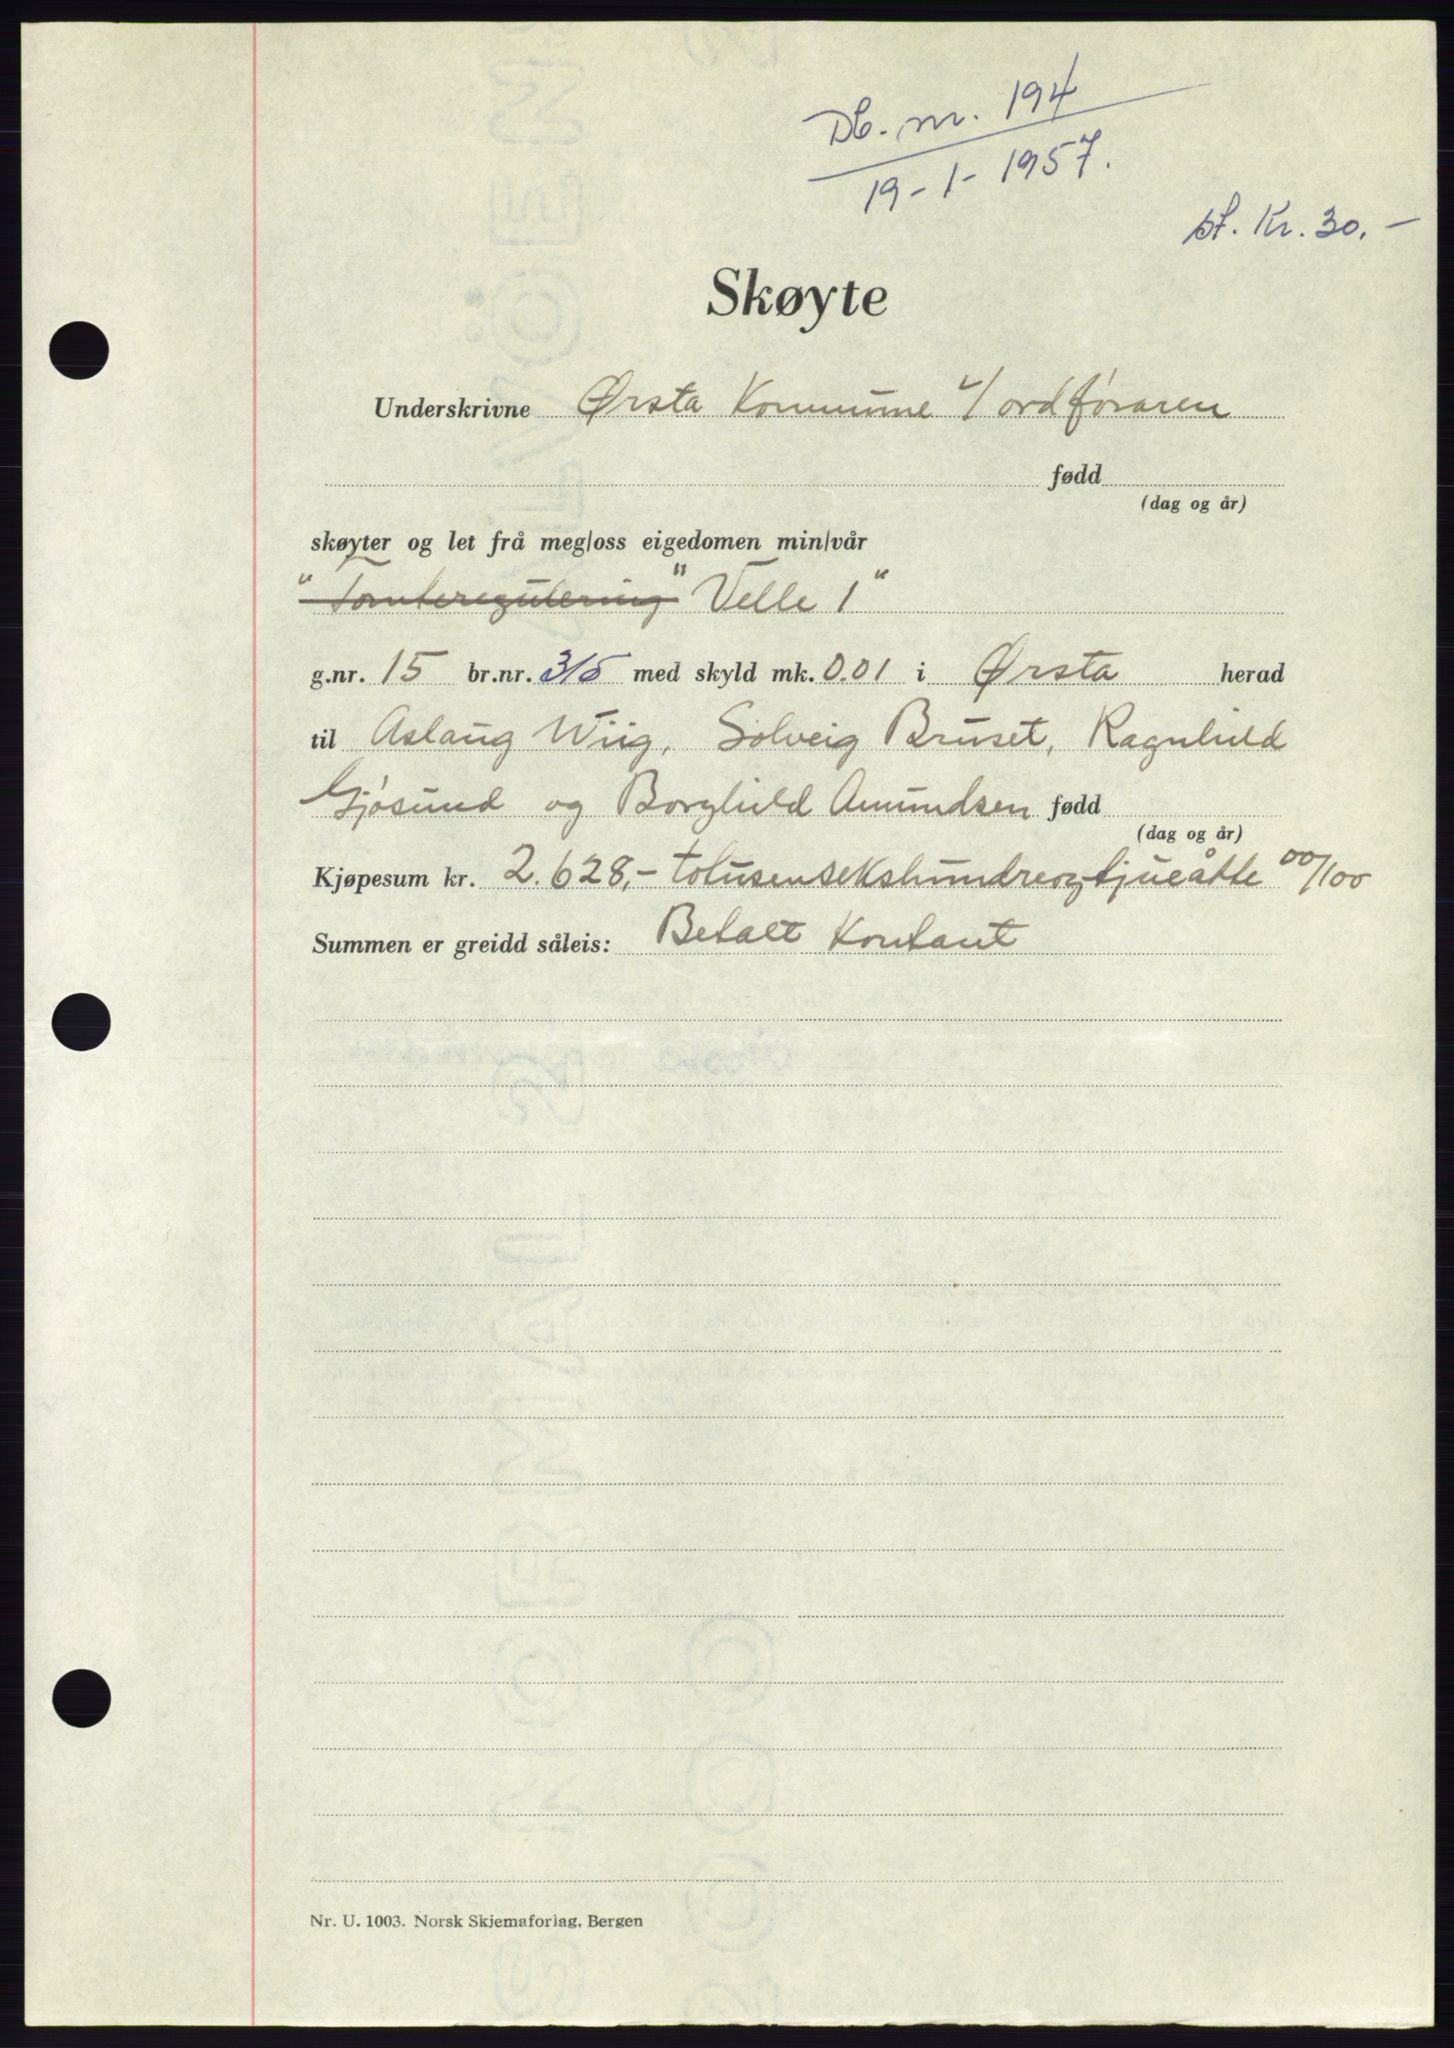 Db. nr. 194
19-1-1957.
St. Kr. 30.-
Skøyte
Underskrivne Ørsta Kommune v/ordføraren
fødd
(dag og år)
skøyter og let frå meg/oss eigedomen min/vår
"Tomteregulering" Velle 1"
g.nr. 15 br.nr. 315 med skyld mk. 0.01 i Ørsta herad
til Aslaug Wiig, Solveig Bruset, Ragnhild
Gjøsund og Borghild Amundsen fødd
(dag og år)
Kjøpesum kr. 2.628,- totusensekshundreogtjueåtte 00/100
Summen er greidd såleis: Betalt Kontant
Nr. U. 1003. Norsk Skjemaforlag, Bergen